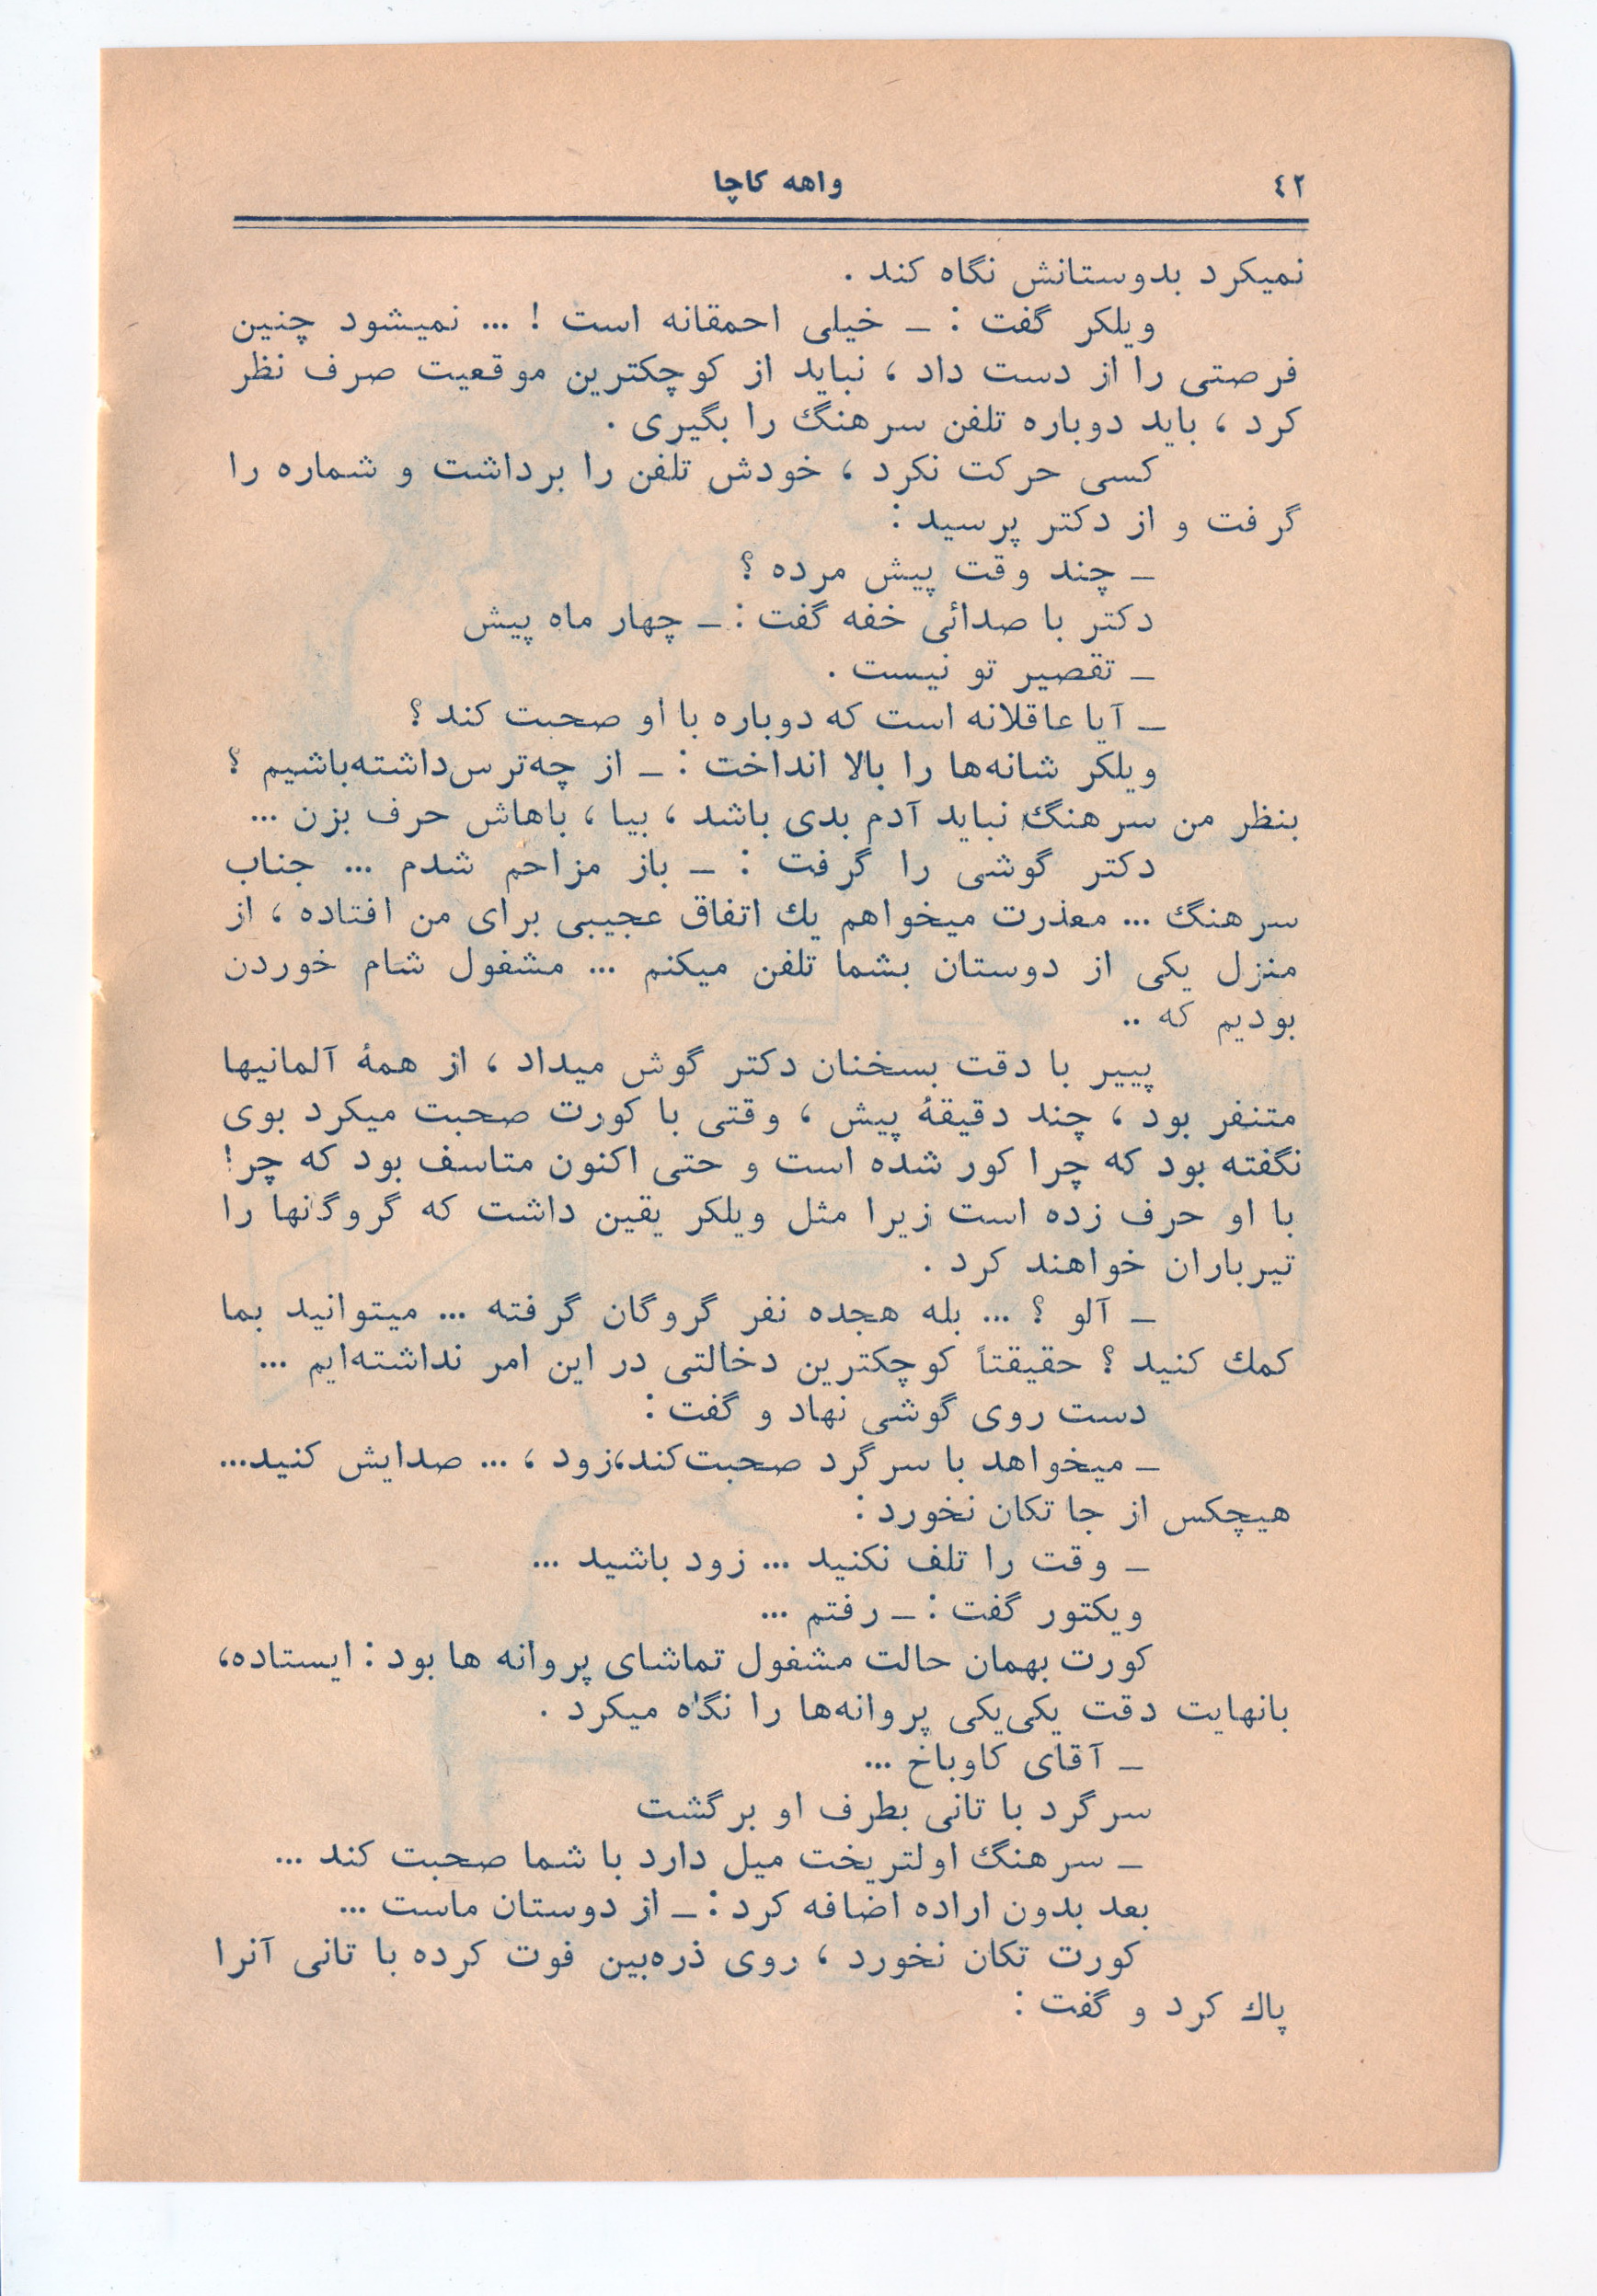 ٤٢
واهه کاچا
نمیکرد بدوستانش نگاه کند .
ویلکر گفت : ـ خیلی احمقانه است ! ... نمیشود چنین
فرصتی را از دست داد ، نباید از کوچکترین موقعیت صرف نظر
کرد ، باید دوباره تلفن سرهنگ را بگیری .
کسی حرکت نکرد ، خودش تلفن را برداشت و شماره را
گرفت و از دکتر پرسید :
ـ چند وقت پیش مرده ؟
دکتر با صدائی خفه گفت : ـ چهار ماه پیش
ـ تقصیر تو نیست .
ـ آیا عاقلانه است که دوباره با او صحبت کند ؟
ویلکر شانه‌ها را بالا انداخت : ـ از چه‌ترس‌داشته‌باشیم ؟
بنظر من سرهنگ نباید آدم بدی باشد ، بیا ، باهاش حرف بزن ...
دکتر گوشی را گرفت : ـ باز مزاحم شدم ... جناب
سرهنگ ... معذرت میخواهم یك اتفاق عجیبی برای من افتاده ، از
منزل یکی از دوستان بشما تلفن میکنم ... مشغول شام خوردن
بودیم که ..
پییر با دقت بسخنان دکتر گوش میداد ، از همهٔ آلمانیها
متنفر بود ، چند دقیقهٔ پیش ، وقتی با کورت صحبت میکرد بوی
نگفته بود که چرا کور شده است و حتی اکنون متاسف بود که چرا
با او حرف زده است زیرا مثل ویلکر یقین داشت که گروگانها را
تیرباران خواهند کرد .
ـ آلو ؟ ... بله هجده نفر گروگان گرفته ... میتوانید بما
کمك کنید ؟ حقیقتاً کوچکترین دخالتی در این امر نداشته‌ایم ...
دست روی گوشی نهاد و گفت :
ـ میخواهد با سرگرد صحبت‌کند،زود ، ... صدایش کنید...
هیچکس از جا تکان نخورد :
ـ وقت را تلف نکنید ... زود باشید ...
ویکتور گفت : ـ رفتم ...
کورت بهمان حالت مشغول تماشای پروانه ها بود : ایستاده،
بانهایت دقت یکی‌یکی پروانه‌ها را نگاه میکرد .
ـ آقای کاوباخ ...
سرگرد با تانی بطرف او برگشت
ـ سرهنگ اولتریخت میل دارد با شما صحبت کند ...
بعد بدون اراده اضافه کرد : ـ از دوستان ماست ...
کورت تکان نخورد ، روی ذره‌بین فوت کرده با تانی آنرا
پاك کرد و گفت :